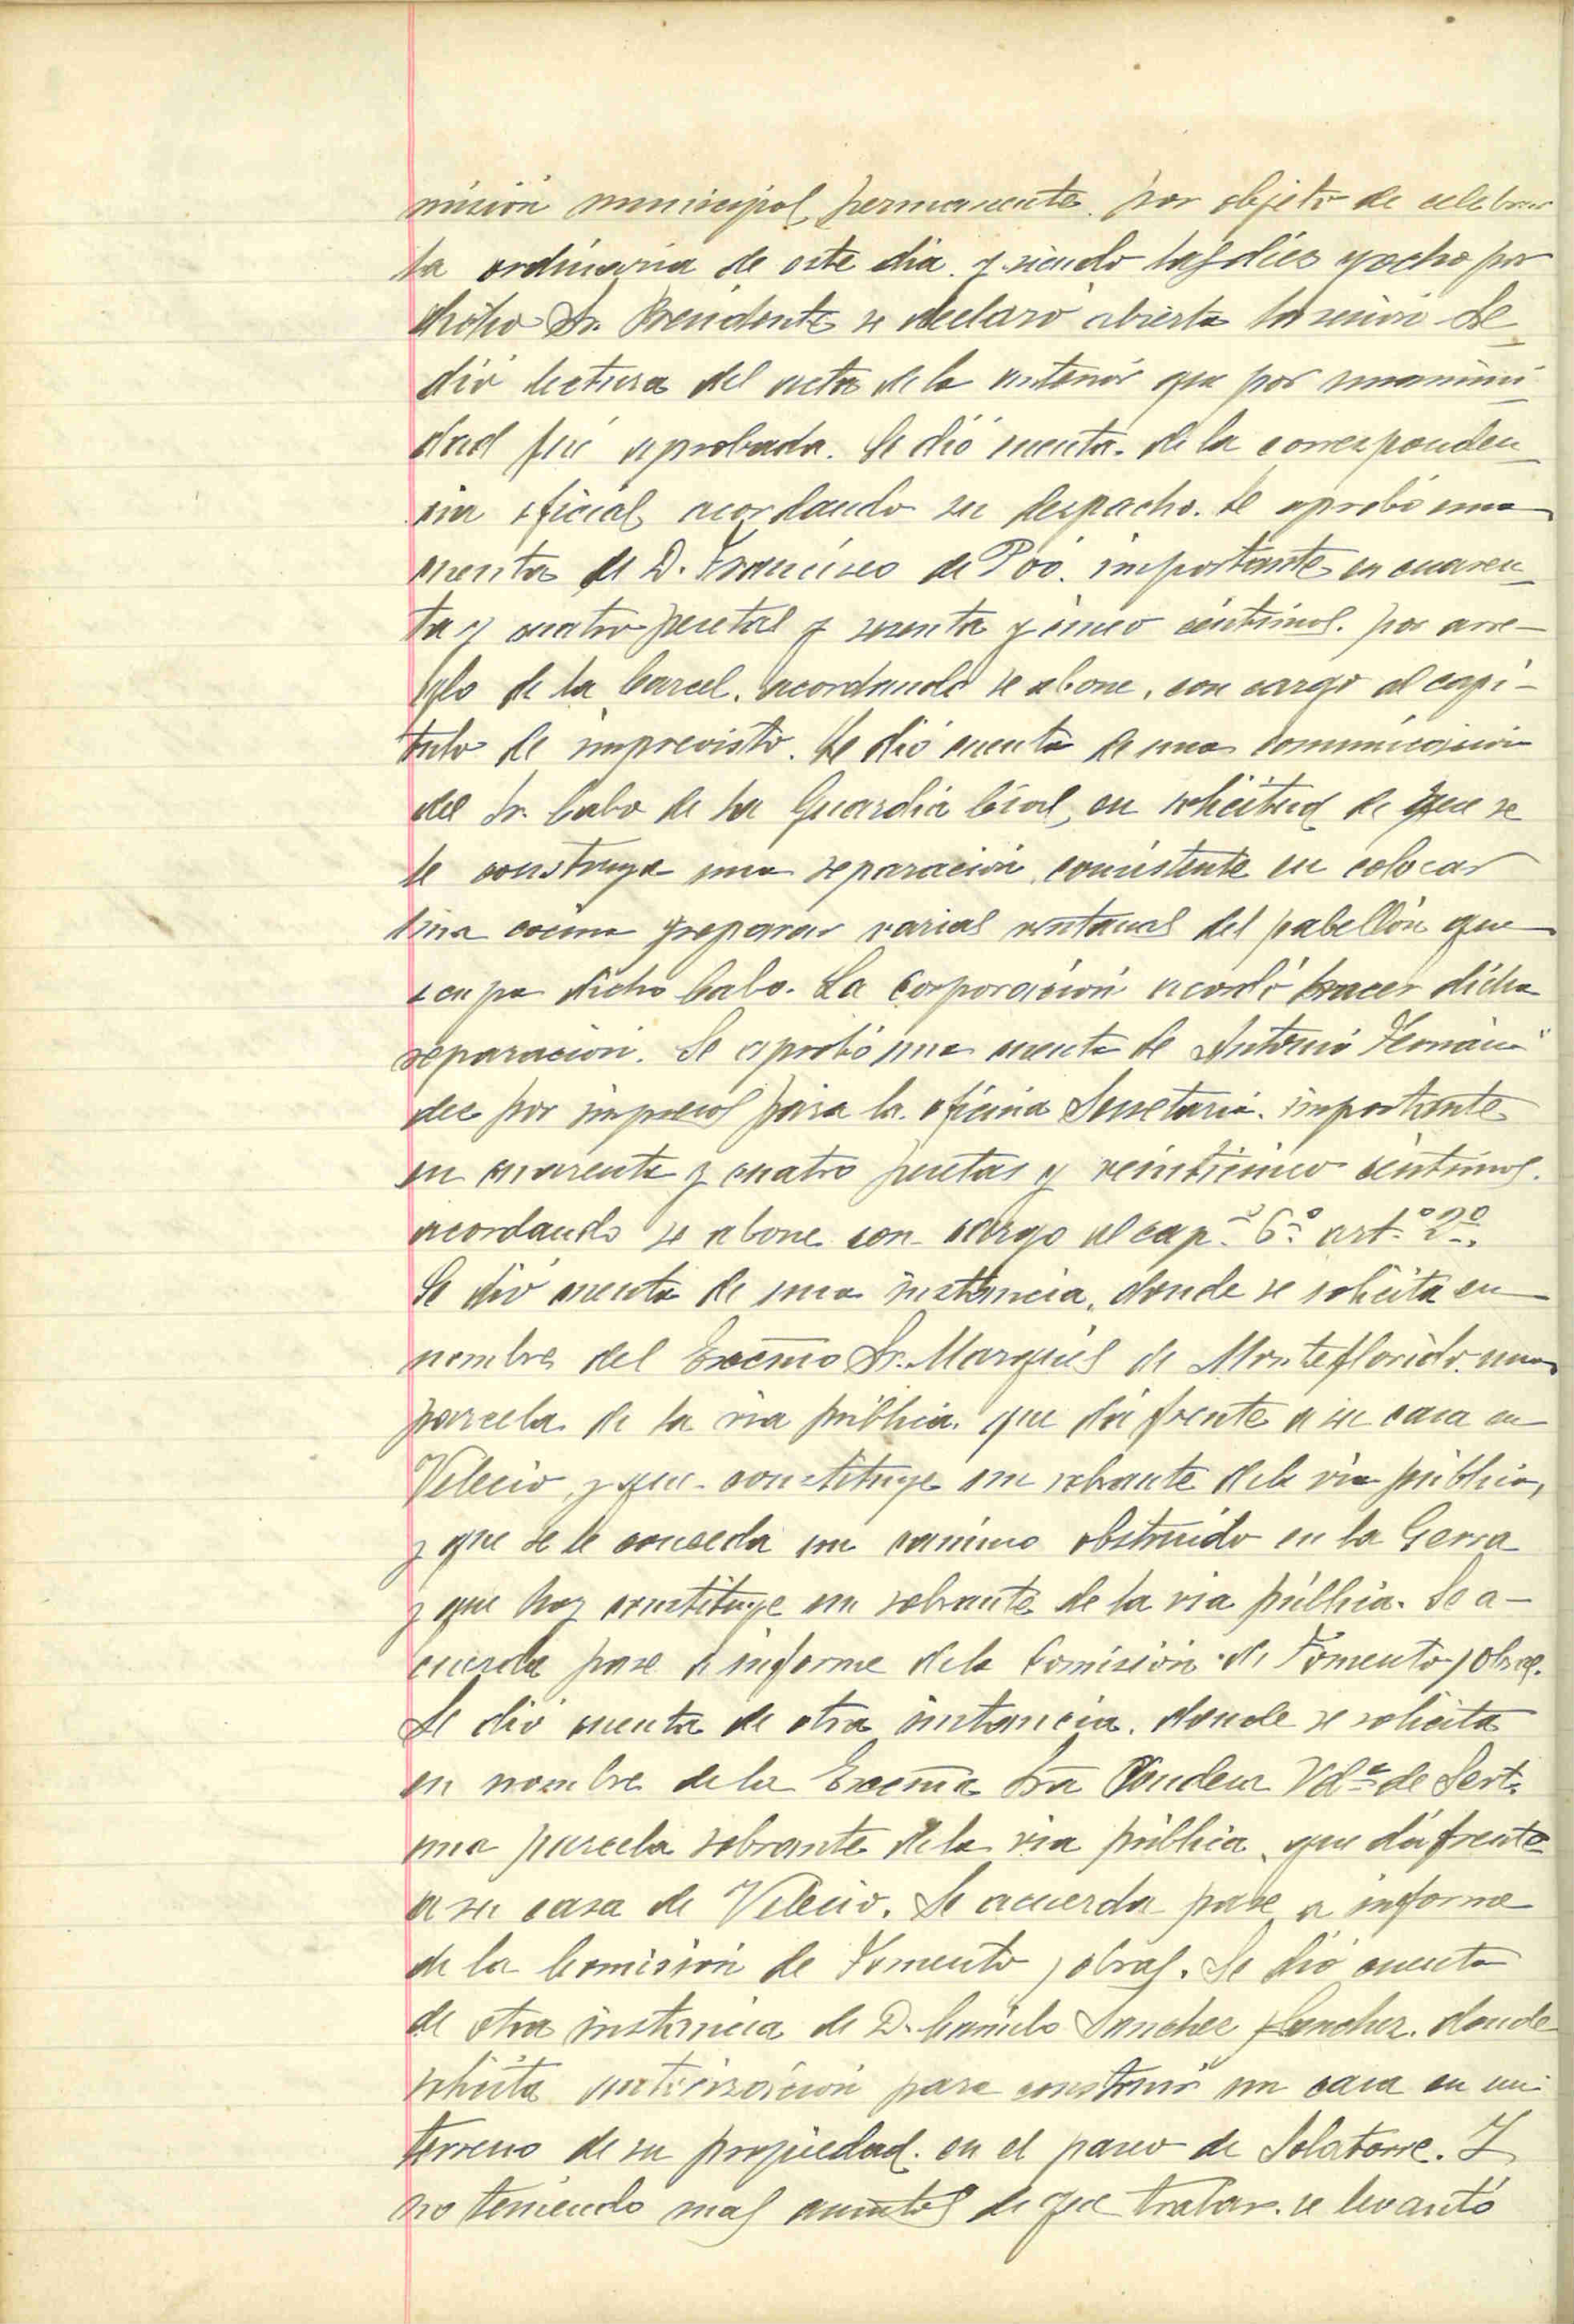 misión municipal permanente. por objeto de celebrar
la ordinaria de este dia. y siendo las diez y ocho por
dicho Sr. Presidente se declaró abierta la sesión Se
dió lectura del acta de la anterior que por unanimi-
dad fué aprobada. Se dió cuenta. de la corresponden-
cia oficial acordando su despacho. Se aprobó una
cuenta de D. Francisco de Poó. importante en cuaren-
ta y cuatro pesetas y sesenta y cinco céntimos. por arre-
glo de la Carcel. acordando se abone, con cargo al capi-
tulo de imprevisto. Se dió cuenta de una comunicación
del Sr. Cabo de la Guardia Civil, en solicitud de que se
le construya una reparación, consistente en colocar
una cocina y reparar varias ventanas del pabellón que
ocupa dicho Cabo. La Corporación acordó hacer dicha
reparación. Se aprobó una cuenta de Antonio Fernán-
dez por impresos para la oficina Secretaria. importante
en cuarenta y cuatro pesetas y veinticinco céntimos.
acordando se abone con cargo al cap.º 6.º art.º 2º.
Se dió cuenta de una instancia, donde se solicita en
nombre del Excmo Sr. Marqués de Monteflorido. una
parcela de la via pública. que dá frente a su casa en
Velecio, y que constituye un sobrante de la via pública,
y que se le conceda un camino obstruido en la Gerra
y que hoy constituye un sobrante de la via pública. Se a-
cuerda pase a informe de la Comisión de Fomento y Obras.
Se dió cuenta de otra instancia. donde se solicita
en nombre de la Excma Sra Condesa Vdª de Sert.
una parcela sobrante de la via pública, que dá frente
a su casa de Velecio. Se acuerda pase a informe
de la Comisión de Fomento y obras. Se dió cuenta
de otra instancia de D. Camilo Sanchez Sanchez. donde
solicita autorización para construir un casa en un
terreno de su propiedad. en el paseo de Solatorre. Y
no teniendo mas asuntos de que tratar. se levantó